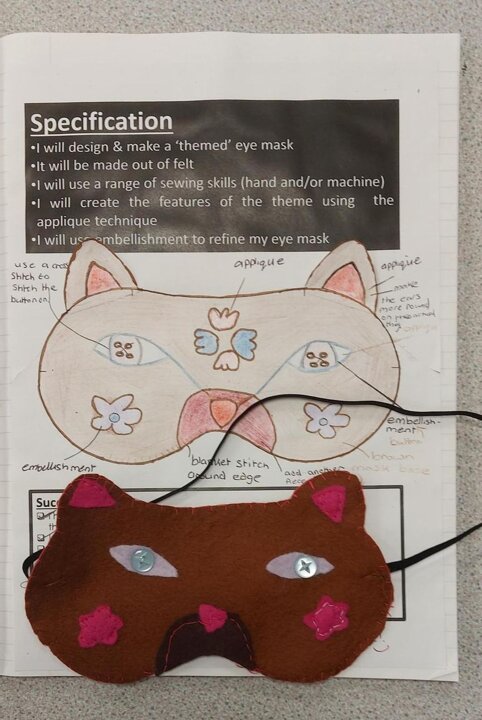 Specification
•I will design & make a 'themed' eye mask
•It will be made out of felt
•I will use a range of sewing skills (hand and/or machine)
•I will create the features of the theme using the
applique technique
•I will use embellishment to refine my eye mask
use a cross
Stitch to
Stitch the
button on.
applique
applique
make
the ears
more round
on
embellish-
ment
button
brown
mask base
embellishment
blanket stitch
around edge
add another
Piece
Succ